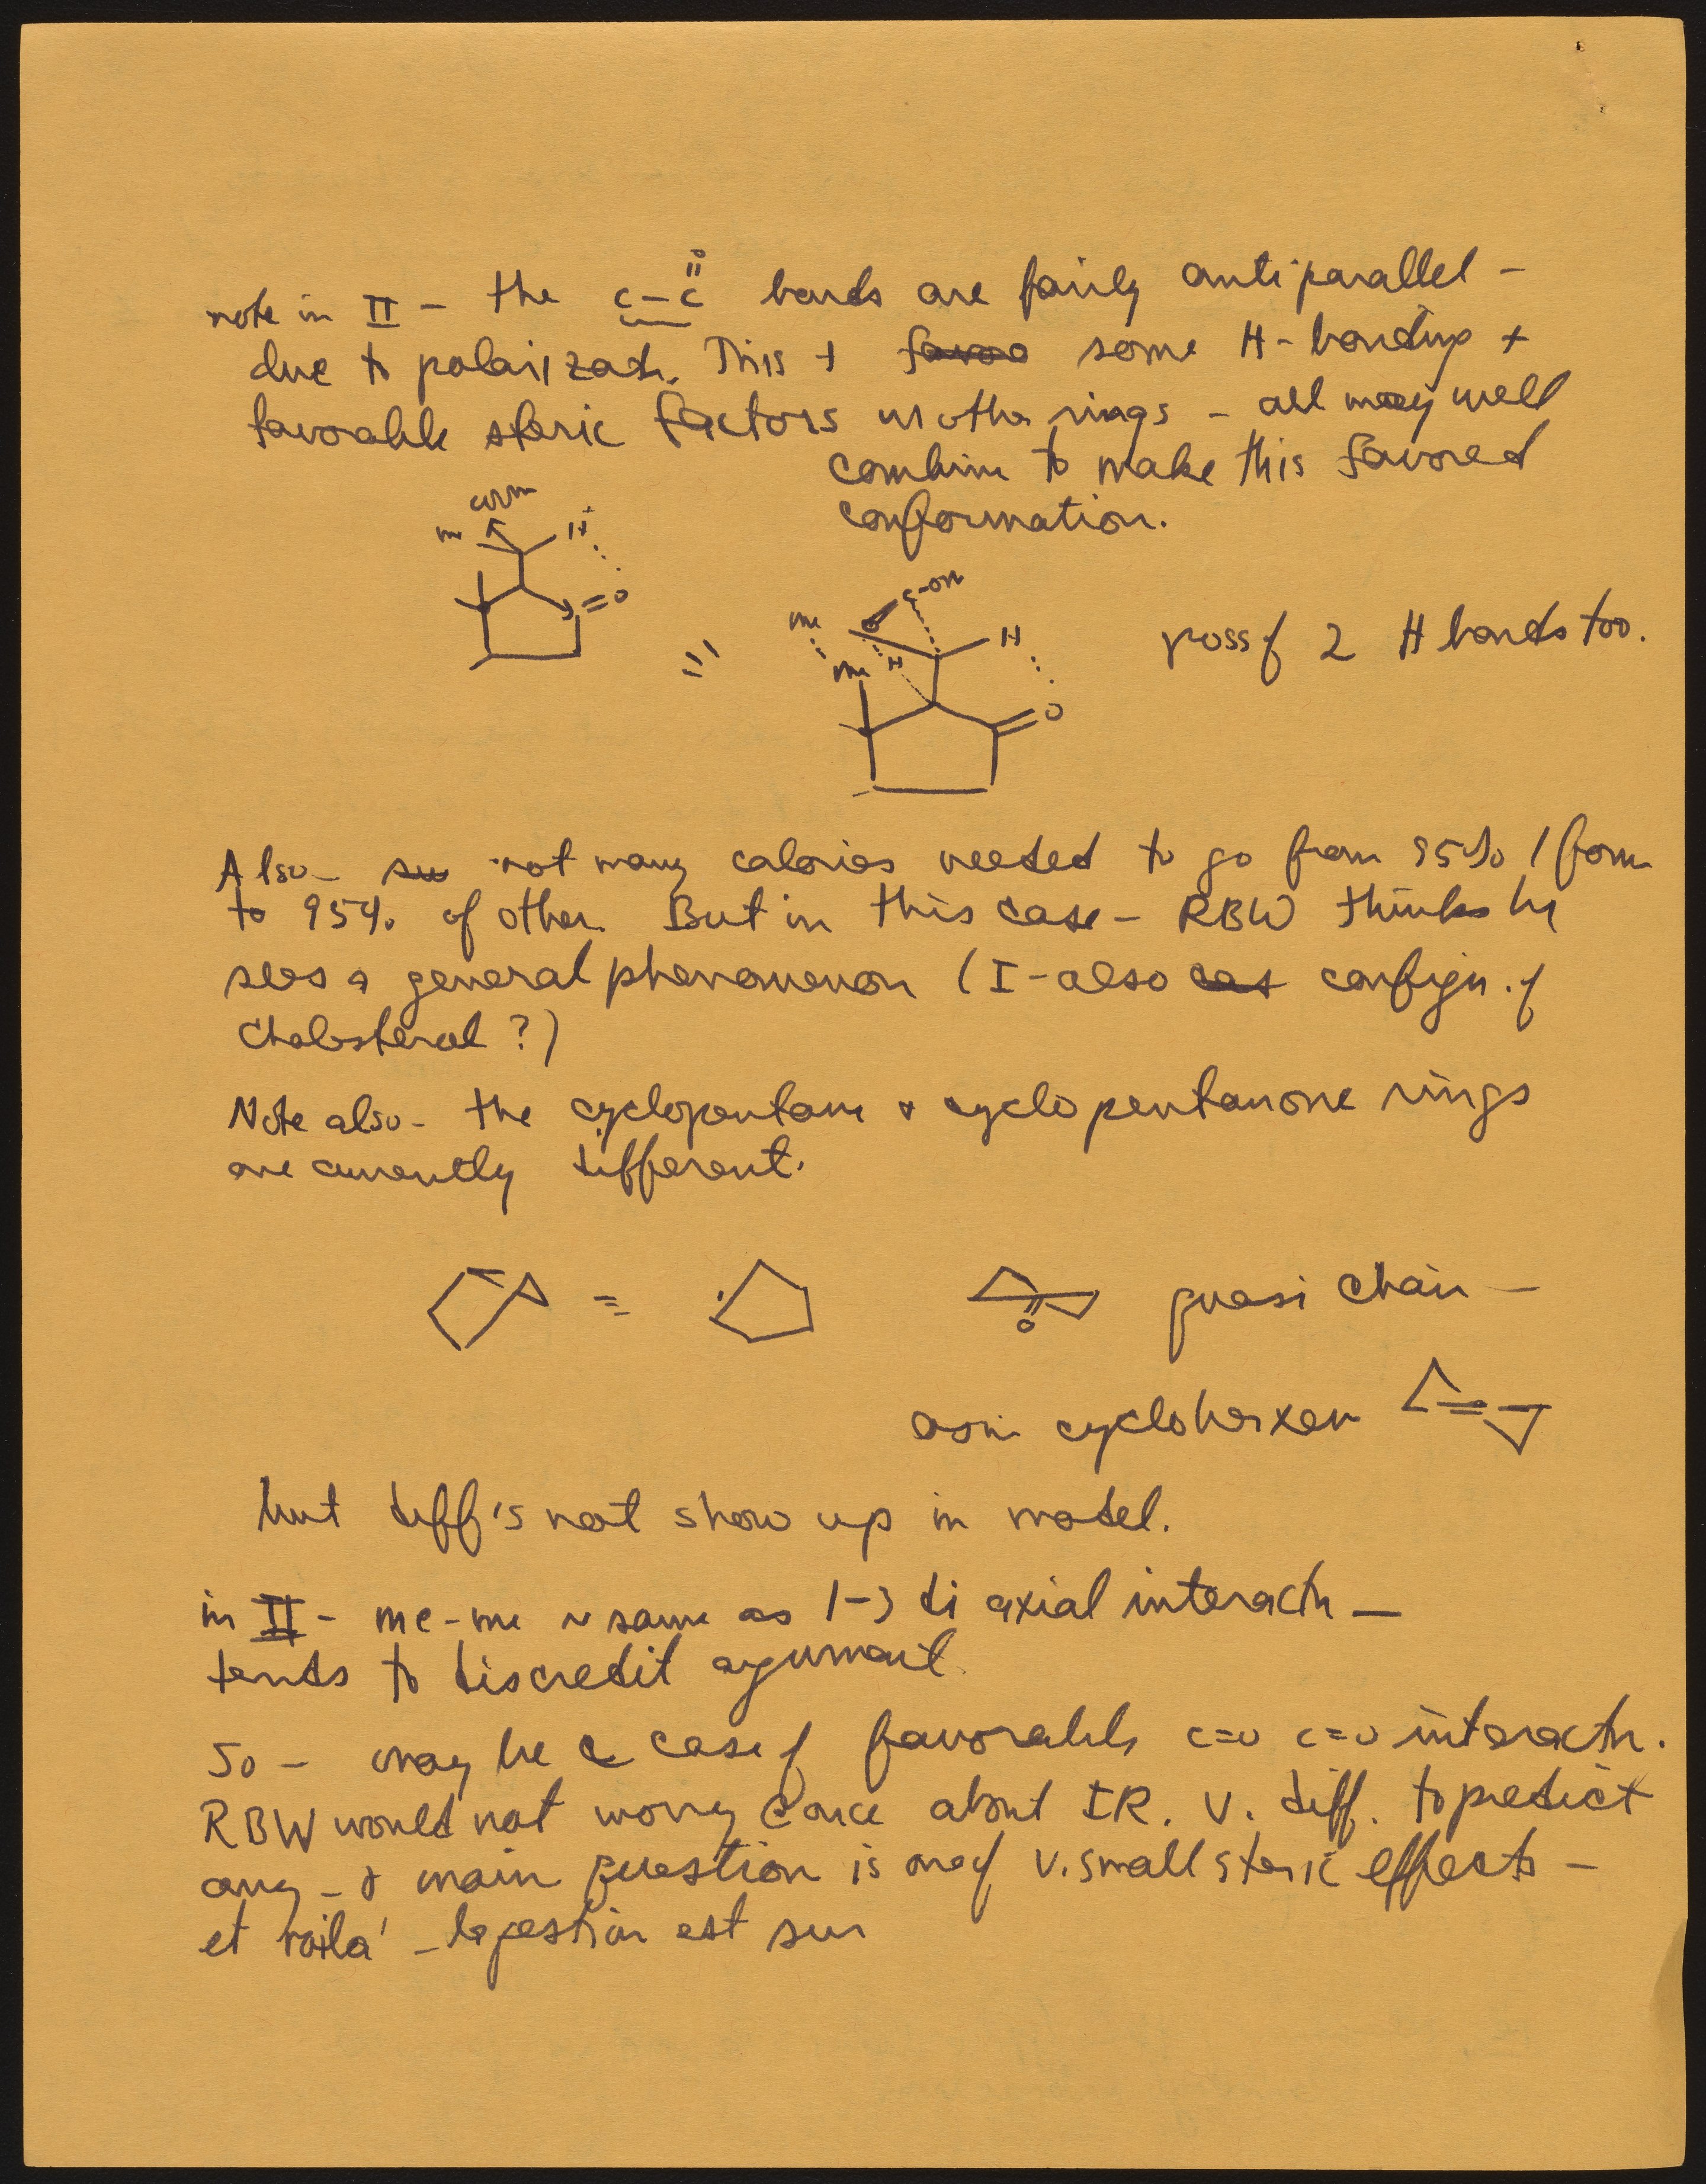 note in II - the C-C̈ bonds are fairly antiparallel -
due to polarizatn. This + some H-bonding +
favorable steric factors w other rings - all may well
combine to make this favored
conformation.
me H
=O
me C-OH
O H
me H
O
poss of 2 H bonds too.
Also - not many calories needed to go from 95% 1 form
to 95% of other. But in this case - RBW thinks he
sees a general phenomenon (I - also config. of
Cholesterol?)
Note also - the cyclopentane & cyclopentanone rings
are currently different.
=
O
quasi chair -
as in cyclohexen
but diff's not show up in model.
in II - me-me ~ same as 1-3 diaxial interactn -
tends to discredit argument.
So - may be a case of favorable c=o c=o interactn.
RBW would not worry once about IR. V. diff. to predict
any - & main question is one of v. small steric effects -
et voilà - la question est sur